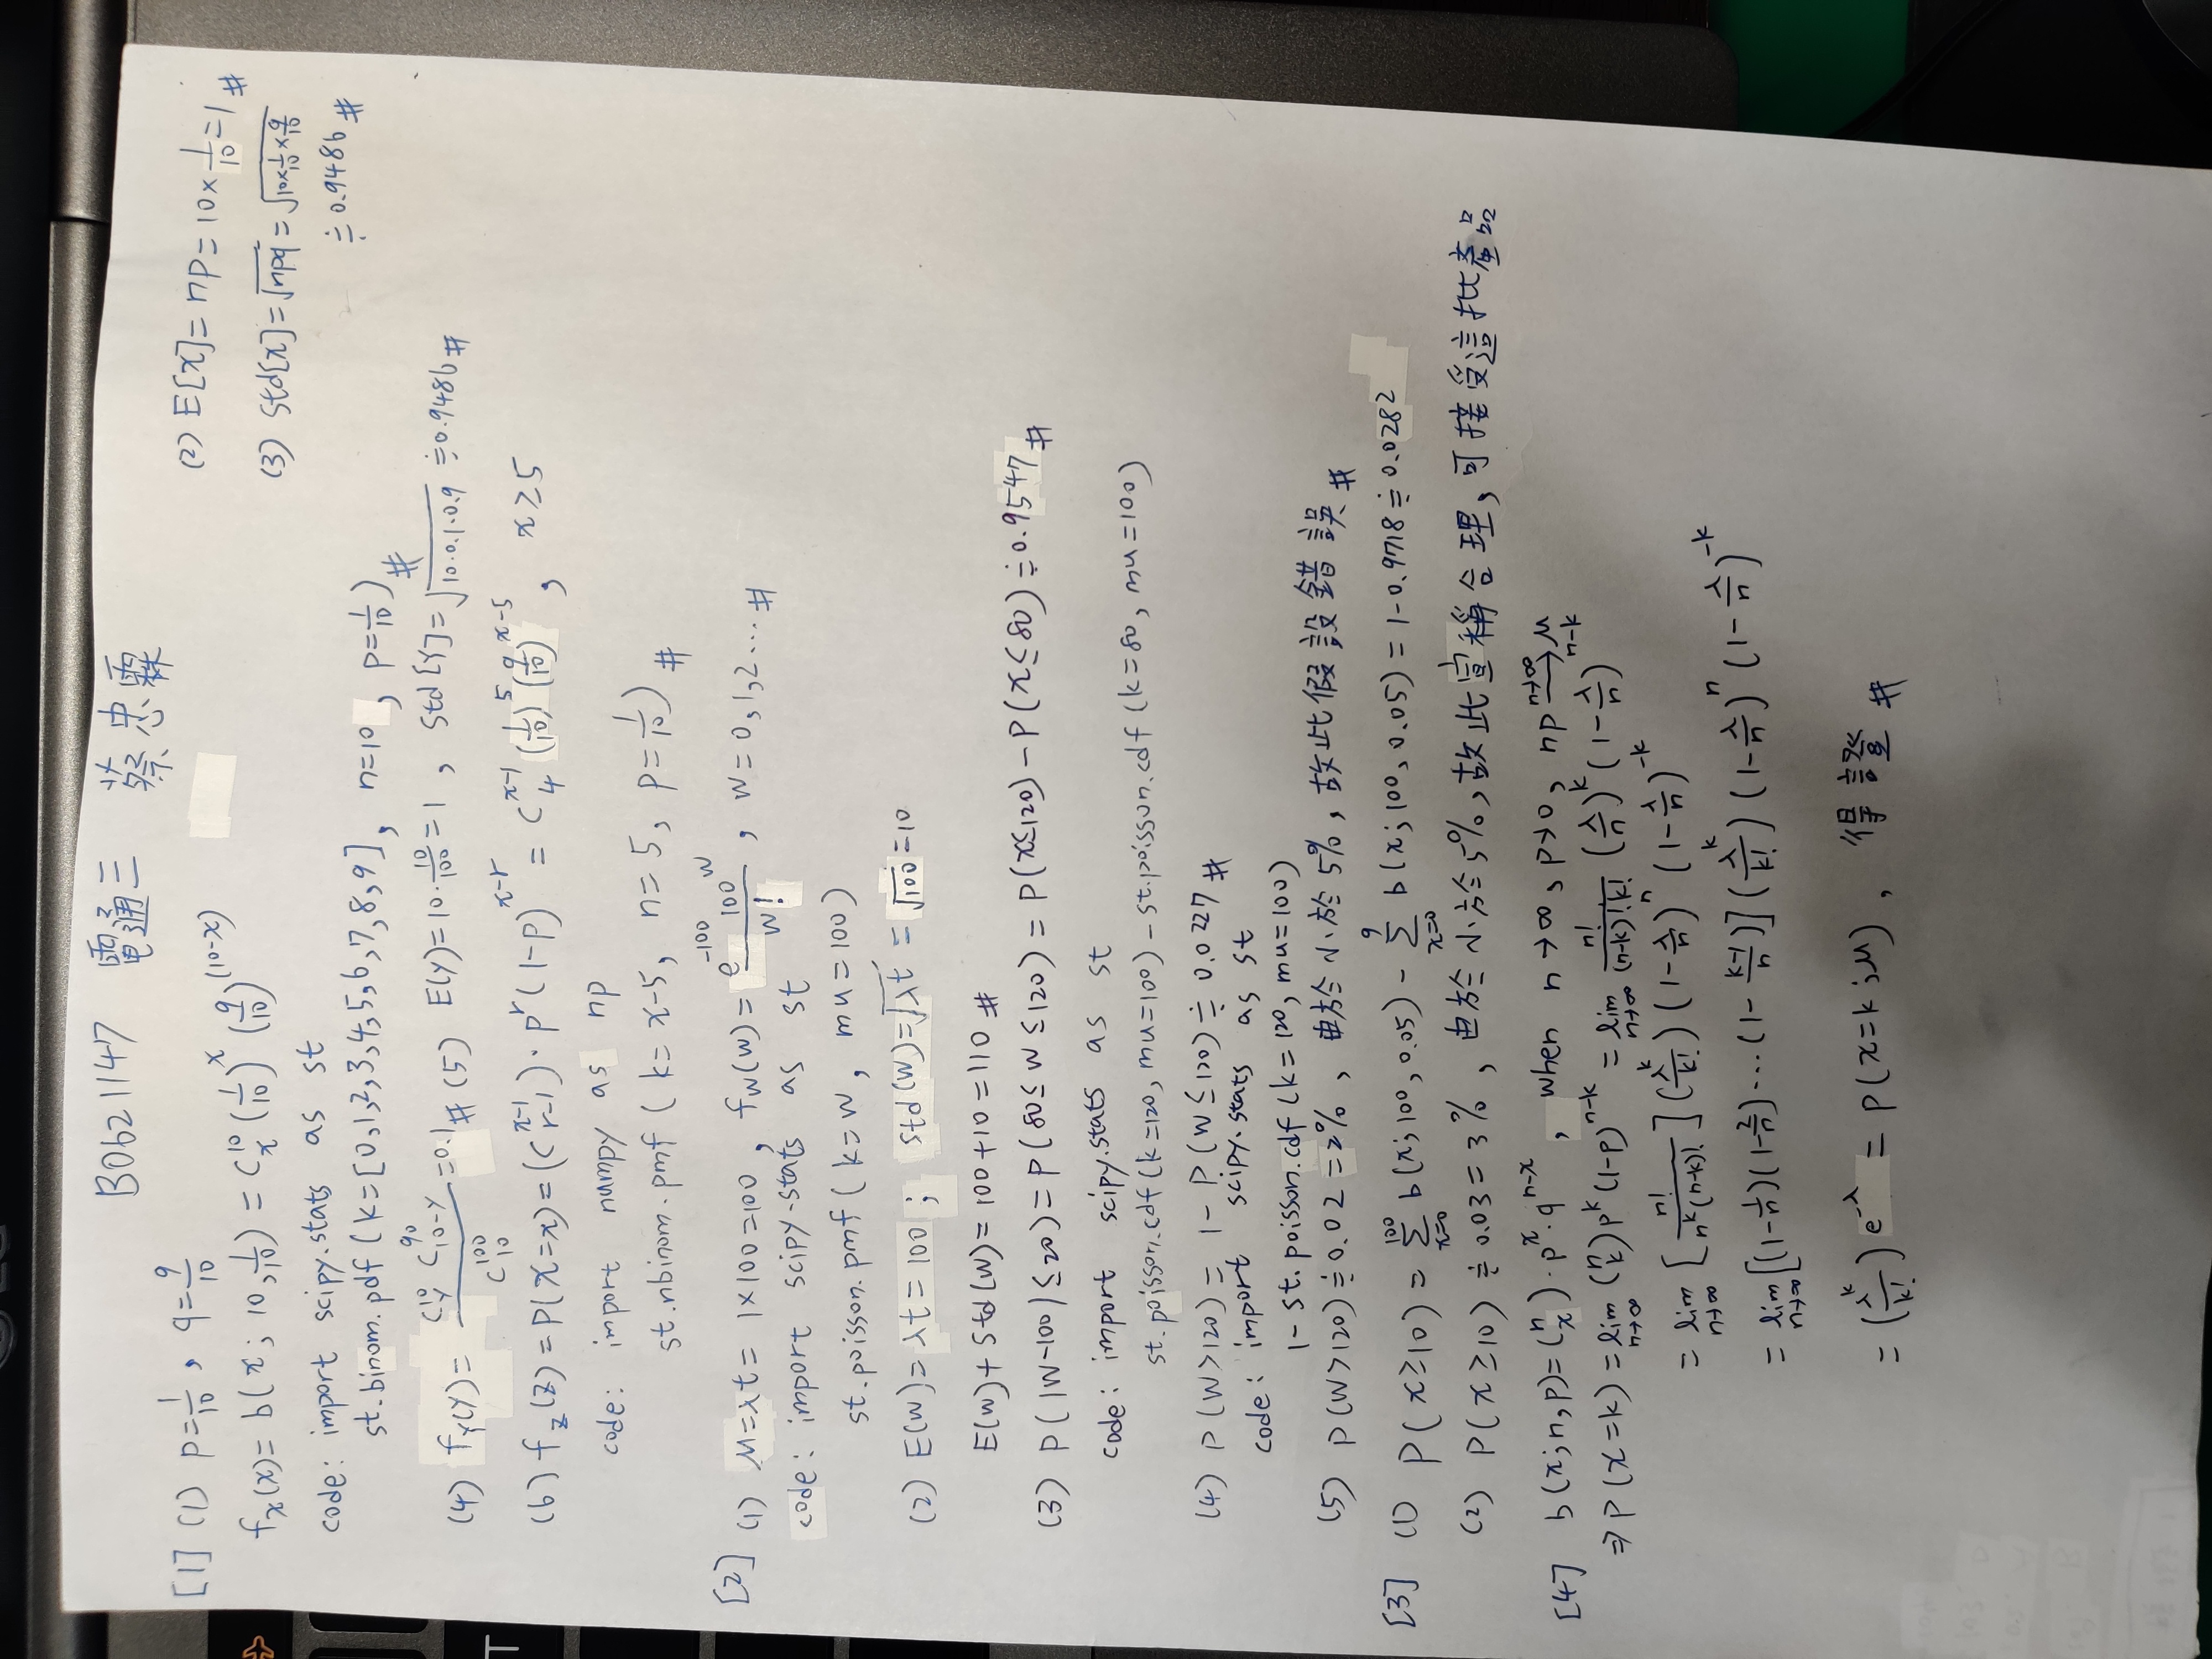 B0621147 電通三 蔡忠霖
[1] (1) p=1/10, q=9/10
(2) E[x]=np=10×1/10=1 #
fx(x)=b(x; 10, 1/10)=C^10_x (1/10)^x (9/10)^(10-x)
(3) Std[x]=√npq=√(10×1/10×9/10)
≒0.9486 #
code: import scipy.stats as st
st.binom.pdf (k=[0,1,2,3,4,5,6,7,8,9], n=10, p=1/10) #
(4) fY(Y)=(C^10_Y C^90_10-Y)/(C^100_10)=0.1 # (5) E(Y)=10·10/100=1, Std[Y]=√(10·0.1·0.9)≒0.9486 #
(6) fz(z)=P(X=x)=(C^x-1_r-1)·p^r(1-p)^x-r=C^x-1_4 (1/10)^5 (9/10)^x-5, x≥5
code: import numpy as np
st.nbinom.pmf (k=x-5, n=5, p=1/10) #
[2] (1) μ=λt=1×100=100, fw(w)=(e^-100 100^w)/w!, w=0,1,2... #
code: import scipy.stats as st
st.poisson.pmf (k=w, mu=100)
(2) E(w)=λt=100; Std(w)=√λt=√100=10
E(w)+Std(w)=100+10=110 #
(3) P(|W-100|≤20)=P(80≤W≤120)=P(x≤120)-P(x≤80)≒0.9547 #
code: import scipy.stats as st
st.poisson.cdf(k=120, mu=100)-st.poisson.cdf(k=80, mu=100)
(4) P(W>120)=1-P(W≤120)≒0.0227 #
code: import scipy.stats as st
1-st.poisson.cdf(k=120, mu=100)
(5) P(W>120)≒0.02=2%, 由於小於5%, 故此假設錯誤 #
[3] (1) P(x≥10)=Σ^100_x=0 b(x;100,0.05)-Σ^9_x=0 b(x;100,0.05)=1-0.9718≒0.0282
(2) P(x≥10)≒0.03=3%, 由於小於5%, 故此宣稱合理, 可接受這批產品
[4] b(x;n,p)=(n x)·p^x·q^n-x, when n→∞, p→0, np→^n→∞ μ
⇒P(x=k)=lim n→∞ (n k)p^k(1-p)^n-k=lim n→∞ n!/((n-k)!k!) (λ/n)^k (1-λ/n)^n-k
=lim n→∞ [n!/(n^k(n-k)!)](λ^k/k!)(1-λ/n)^n(1-λ/n)^-k
=lim n→∞ [(1-1/n)(1-2/n)...(1-(k-1)/n)](λ^k/k!)(1-λ/n)^n(1-λ/n)^-k
=(λ^k/k!)e^-λ=P(x=k;μ), 得證 #